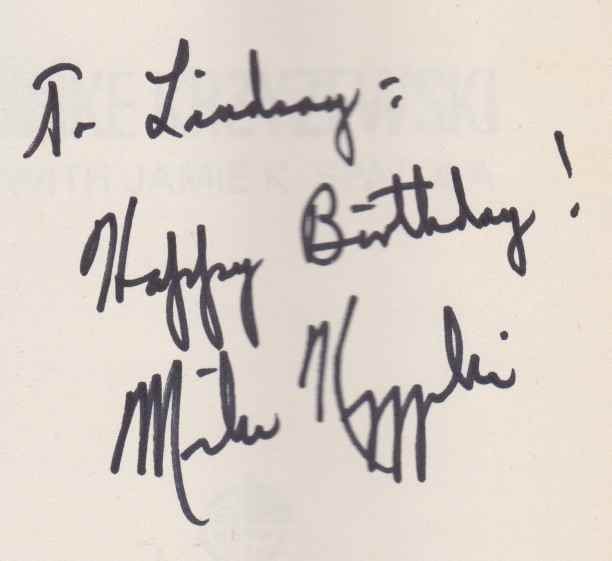 To Lindsay:
Happy Birthday!
Mike Krzyzewski
WITH JAMIE K. SPATOLA